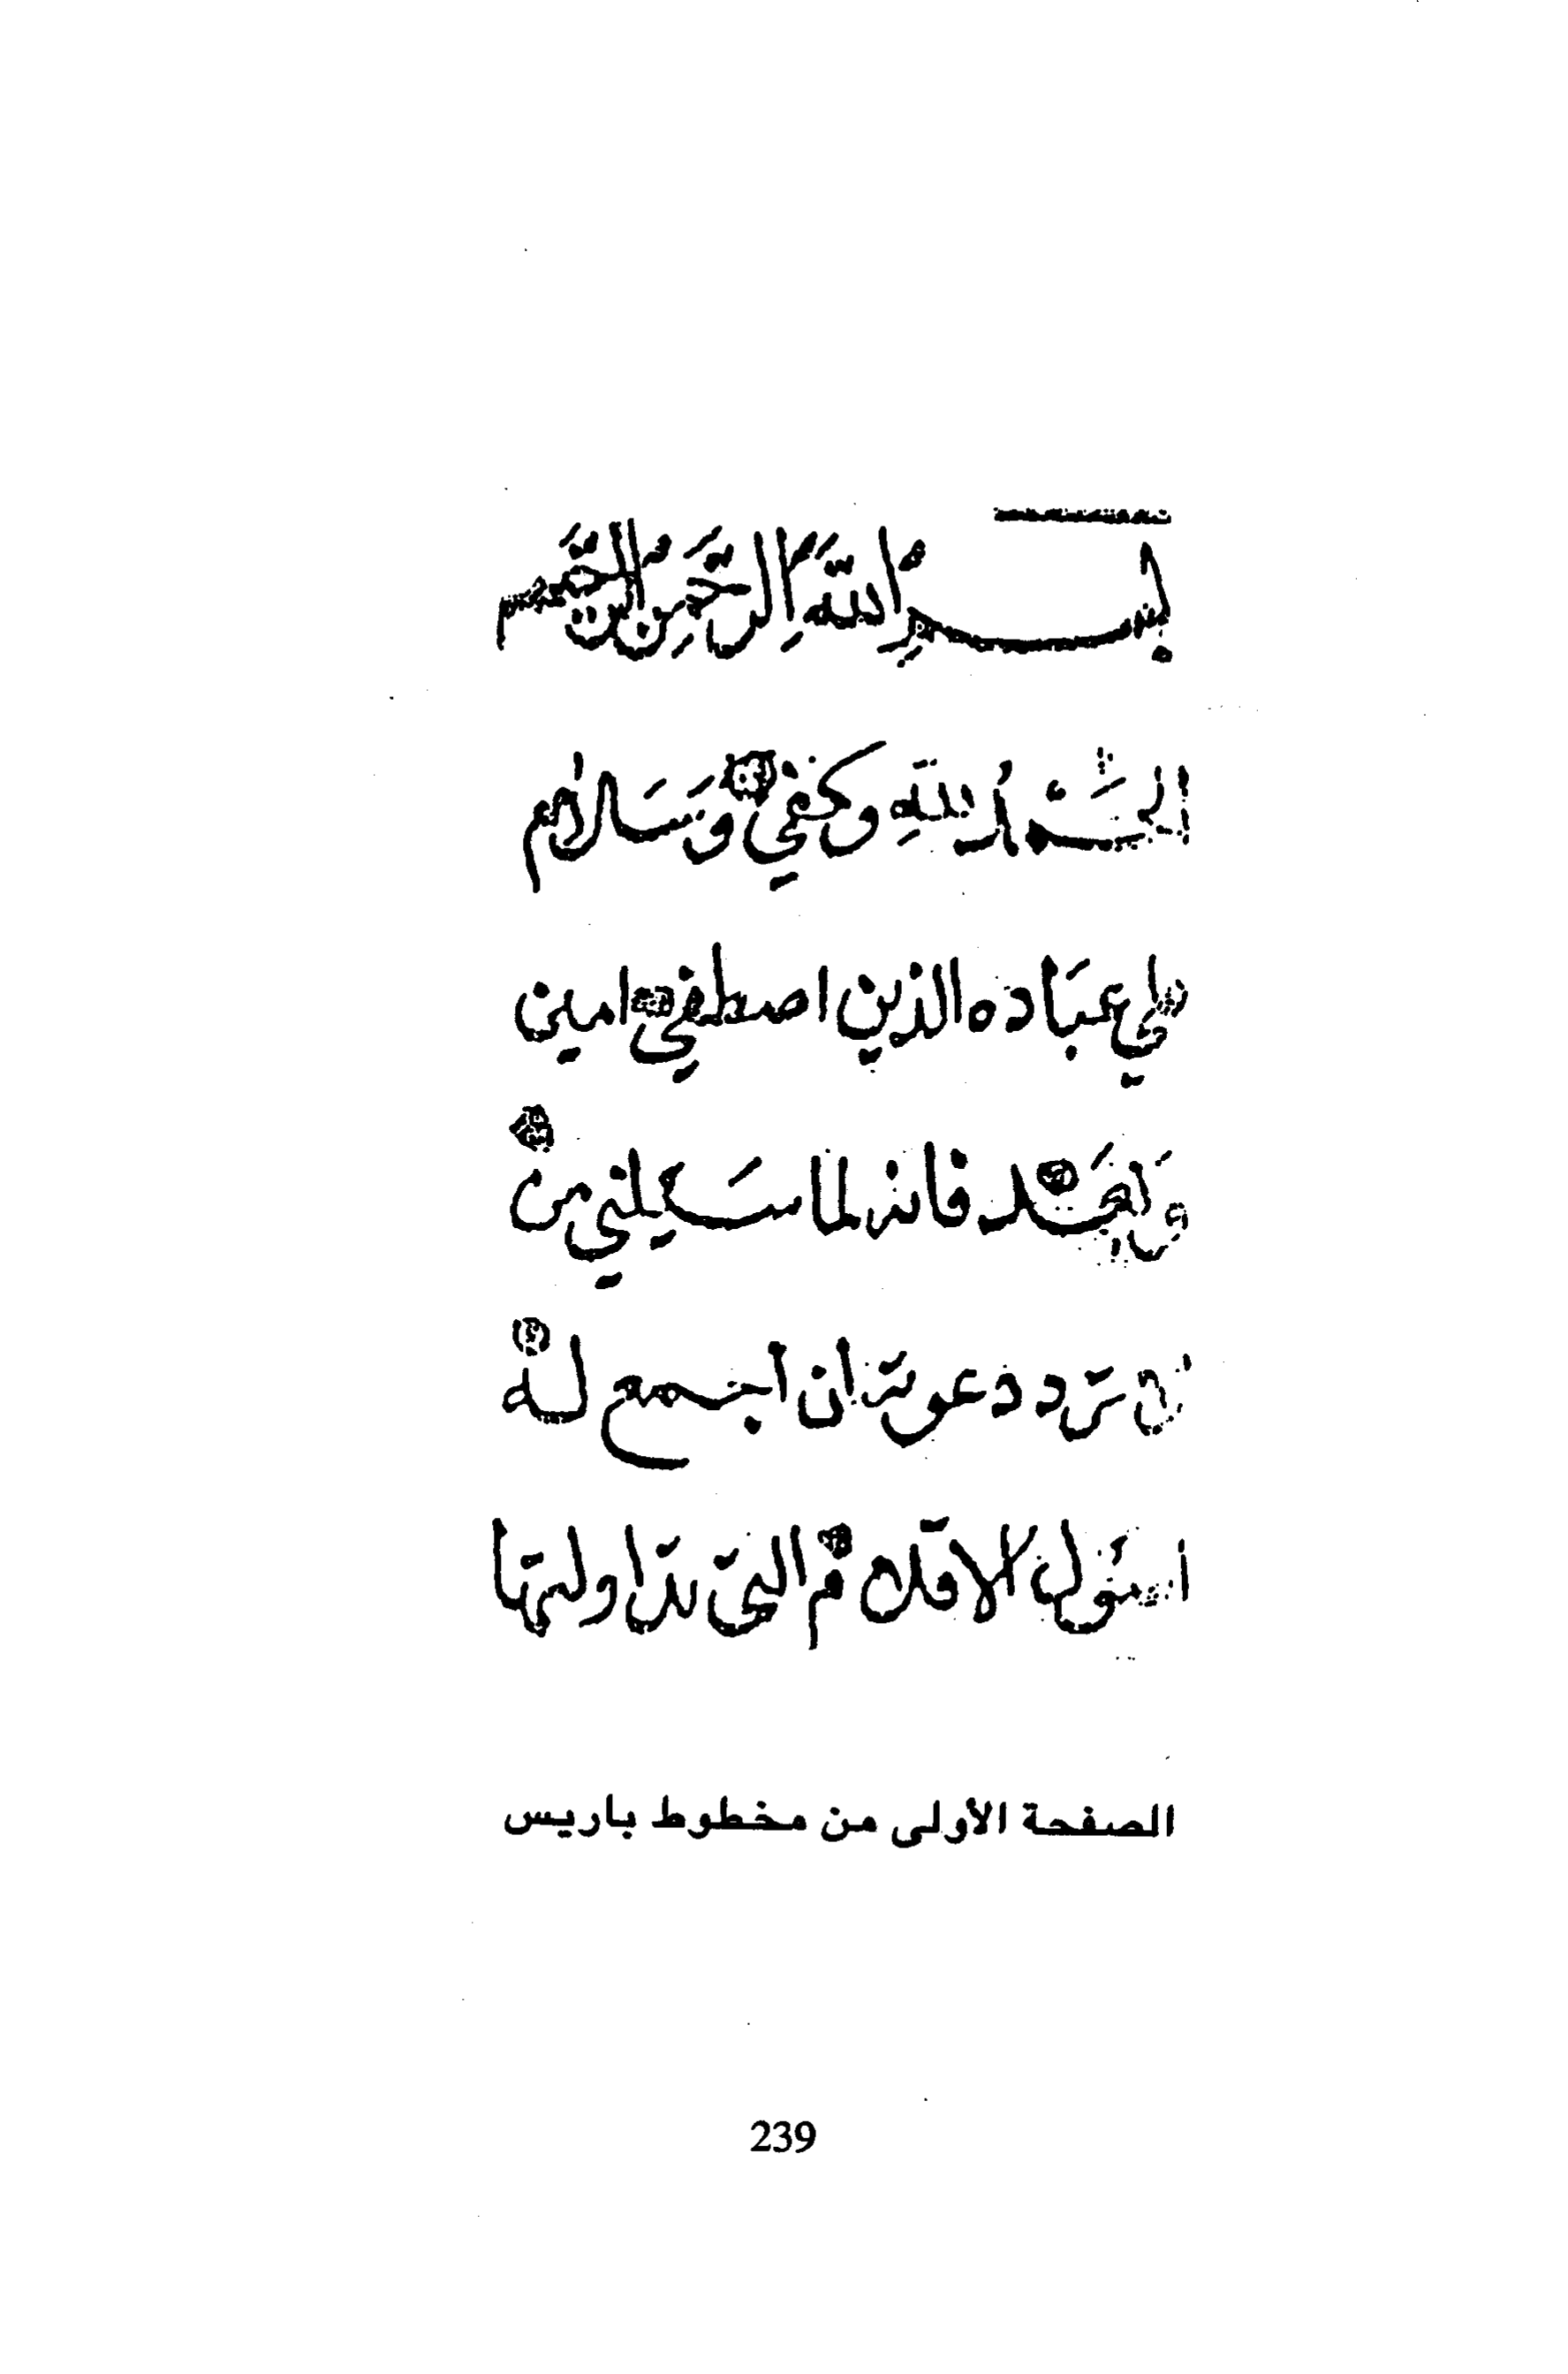 بسم اللهِ الرَّحْمٰنِ الرَّحيم
الحَمْدُ للهِ وكفي وَسَلامٌ
علي عبَاده الذين اصطفي امين
وَبَعَد فانه لما سَيلني من
لا ترد دعوته ان اجمع له
اصُول الاقلام التي تداولتها
الصفحة الأولى من مخطوط باريس
239